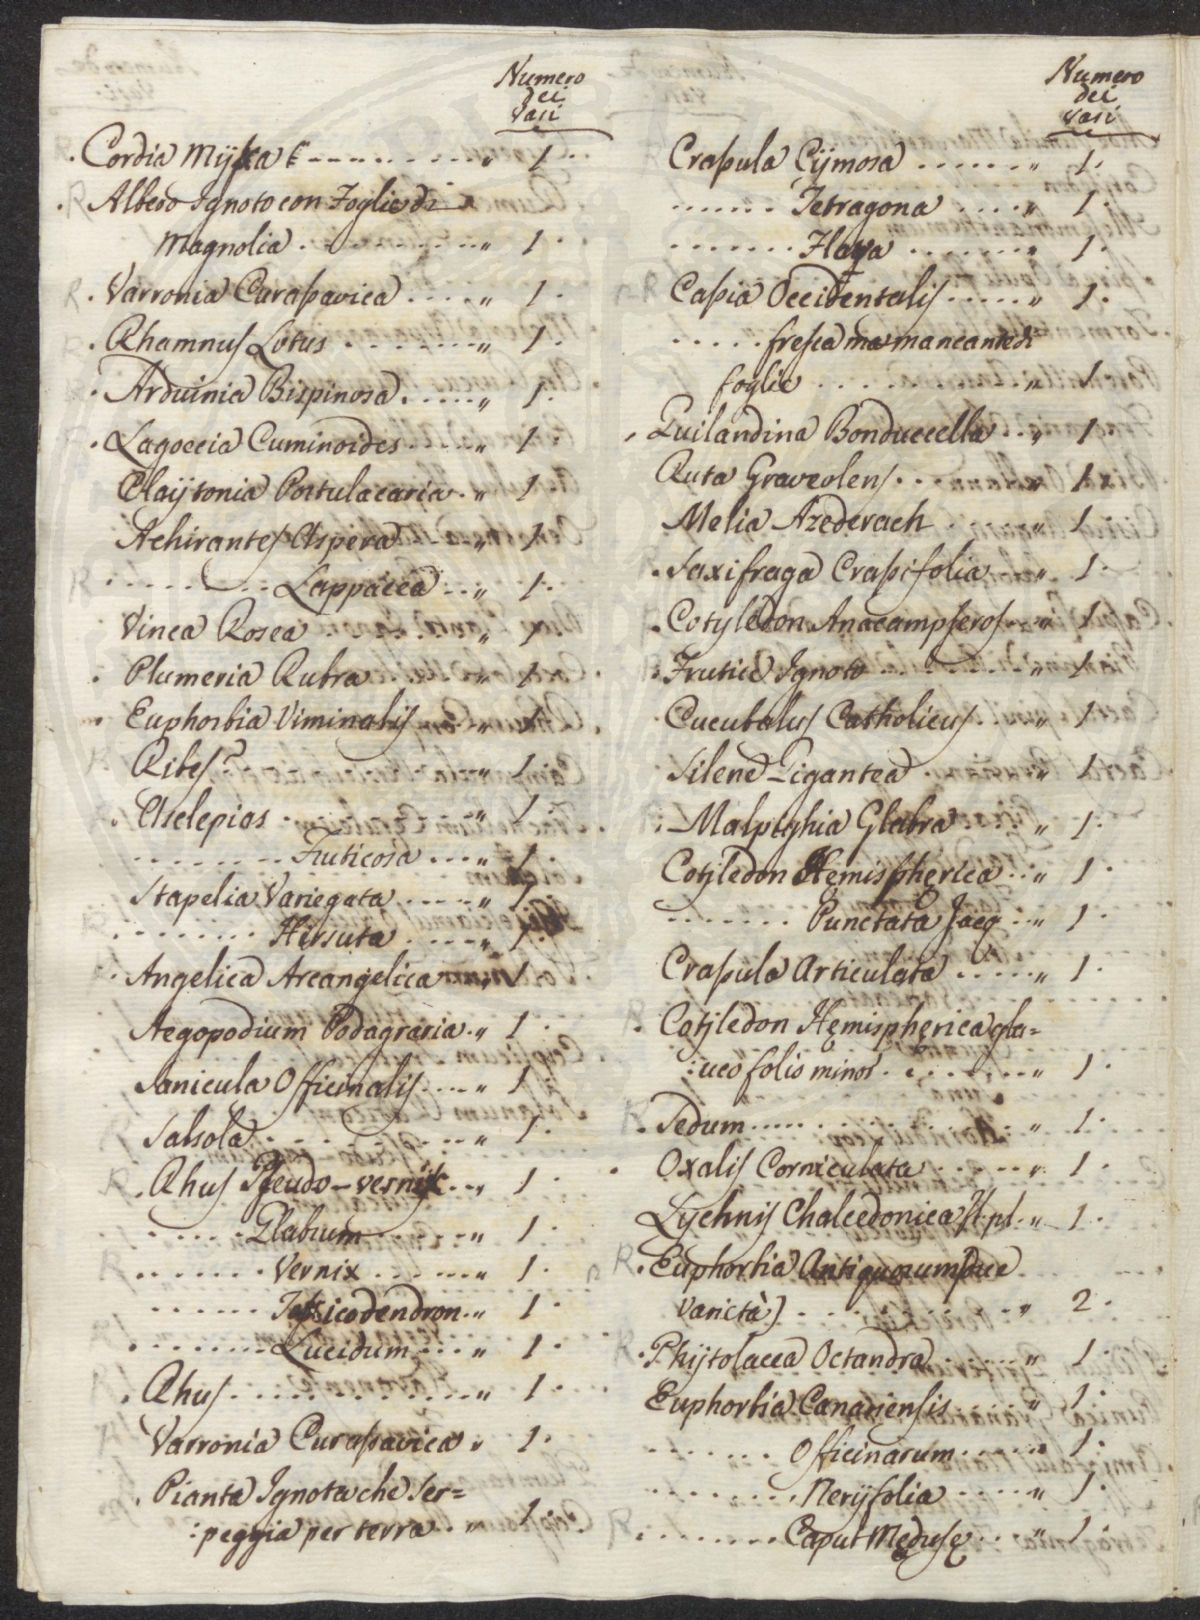 Numero
dei
vasi
Cordia Mijxa
Albero Ignoto con Foglie di
Magnolia ........ „ 1.
Varronia Curaſsavica .... „ 1.
Rhamnuſ Lotus ........ „ 1.
Arduinia Bispinosa ..... „ 1.
Lagoecia Cuminoides .... „ 1
Claijtonia Portulacaria . „ 1
Achiranteſ Aspera „ 1
........ Lappacea .. „ 1.
Vinca Rosea „ 1
Plumeria Rubra „ 1
Euphorbia Viminaliſ „ 1
Ribeſ? „ 1
Aſclepias . „ 1.
........ Fruticosa ... „ 1.
Stapelia Variegata ..... „ 1
........ Hirsuta .... „ 1.
Angelica Arcangelica „ 1
Aegopodium Podagraria . „ 1.
Sanicula Officinaliſ .... „ 1
Salsola ........ „ 1.
Rhuſ Pſeudo-vernix .. „ 1.
...... Glabrum ...... „ 1.
...... Vernix ...... „ 1.
...... Toxicodendron .. „ 1.
........ Lucidum ... „ 1.
Rhuſ ............ „ 1.
Varronia Curaſsavica . „ 1.
Pianta Ignota che Ser=
:peggia per terra .. „ 1.
Numero
dei
vasi
Craſsula Cijmosa ....... „ 1.
...... Tetragona .... „ 1.
....... Flava ....... „ 1.
Caſsia Occidentaliſ ..... „ 1.
..... freſca ma mancante di
foglie ..... „ 1
Guilandina Bonduccella .. „ 1
Ruta Graveolenſ ... „ 1
Melia Azederach „ 1
Saxifraga Craſsifolia „ 1.
Cotyledon Anacampſeroſ „ 1
Frutice Ignoto „ 1
Cucubaluſ Catholicuſ „ 1
Silene Gigantea . „ 1.
Malpighia Glabra „ 1.
Cotijledon Hemispherica .. „ 1.
....... Punctata Jacq .. „ 1.
Craſsula Articulata ..... „ 1.
Cotijledon Hemispherica gla=
:uco folio minor ........ „ 1.
Sedum ........ „ 1.
Oxaliſ Corniculata ...... „ 1.
Lychniſ Chalcedonica fl. pl. „ 1.
Euphorbia Antiquorum due
varietà) ........ „ 2.
Phijtolacca Octandra ..... „ 1.
Euphorbia Canarienſis „ 1.
....... Officinarum ..... „ 1.
........ Nerijfolia ..... „ 1.
....... Caput Meduſę .. „ 1.